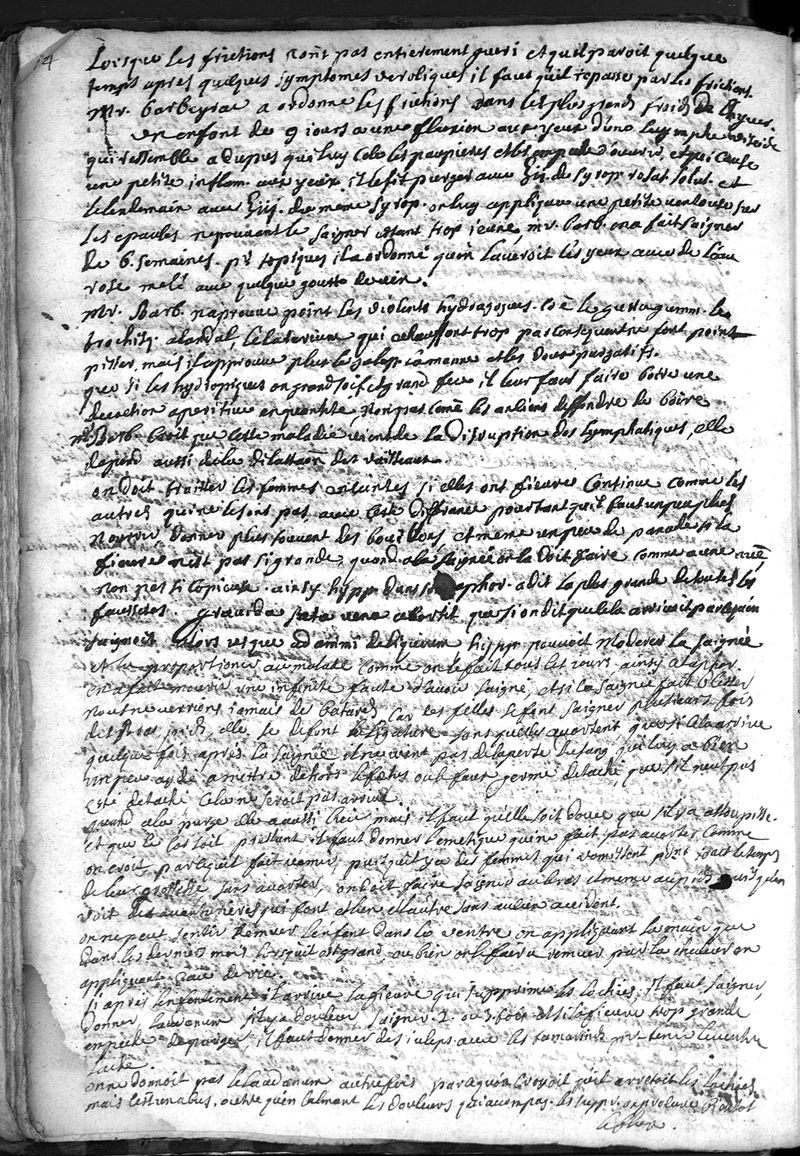 14
Lorsque les frictions n'ont pas entierement gueri et quil paroit quelque
temps apres quelques symptomes veroliques il faut quil repasse par les frictions.
Mr. barbeyrac a ordonné les frictions dans les plus grands froids de lhyver.
un enfont de 9 iours avoit fluxion aux yeux d'une lymphe
qui ressemble a du pus qui luy cole les paupieres et les d'ouvrir, et qui cause
une petite inflam. aux yeux il le fit purger avec ʒij. de syrop rosat solut. et
le lendemain avec ʒiij. du mesme syrop. on luy appliqua une petite ventouse sur
les epaules ne pouvant le saigner estant trop jeune, mr. barb. en a fait saigner
de 6. semaines. pr. topiques il a ordonné qu'on laveroit les yeux avec de l'eau
rose melé avec quelque goutte de vin.
Mr. Barb. n'aprouve point les violents hydragogues. le guttagumm. les
trochisq. alandal, le elaterium qui echauffent trop par consequent ne font point
pisser, mais il approuve plus le jalap la manne et les doux purgatifs.
que si les hydropiques on grand soif et grand feu il leur faut faire boire une
decoction aperitive en quantité, non pas comē les anciens deffendre de boire
mr Barb. croit que cette maladie vient de la disruption des lymphatiques, elle
depend aussi de la dilatation des vaisseaux.
on doit traitter les femmes enceintes si elles ont fieuvre continue comme les
autres qui ne le sont pas, avec cette differance pourtant quil faut un peu plus
nourrir, donner plus souvent des bouillons et meme un peu de panade si la
fieuvre n'est pas si grande, quand a la saignée on la doit faire comme a une
non pas si copieuse. ainsy hypp. dans son aphor. a dit la plus grande de toutes les
faussetes. gravida secta vena abortit que si on dit que cela arrivoit parce quon
saignoit alors usque ad animi deliquium hypp. pouvoit moderer la saignée
et la proportioner au malade comme on le fait tous les iours ainsy
on a fait mourir une infinité faute d'avoir saigné, et si la saignée fait blesser
nous ne verrions iamais de batards car les filles se font saigner plusieurs fois
des pieds, elle se defont la ligature sans quelles avortent que si cela arrive
quelque fois apres la saignée il ne vient pas de la perte du sang qui luy a bien
un peu aydé a mettre dehors le fetus ou le faux germe detaché que s'il n'eut pas
esté detaché cela ne seroit pas arrivé.
quand a la purge elle a aussi lieu mais il faut qu'elle soit douce que s'il y a
et que le cas soit pressant il faut donner l'emetique qui ne fait pas avorter comme
on croit, parcequil fait vomir, puisquil y a des femmes qui vomissent tout le temps
de leur grossesse sans avorter, on doit faire saigner au bras et meme au pied puisqu'on
voit des aventurieres qui font et l'un et l'autre sans aucun accident.
on ne peut sentir remuer l'enfent dans le ventre en appliquant la main que
dans les derniers mois lorsquil est grand ou bien on le faira remuer par la chaleur en
appliquant
si apres l'enfentement il arrive la fieuvre qui supprime les lochies, il faut saigner,
donner laudanum s'il y a douleur, saigner 2. ou 3. fois et si la fieuvre trop grande
enpeche de purger, il faut donner des iuleps avec les tamarinds pr. tenir le ventre
lache.
on ne donnoit pas le laudanum autrefois parcequon croyoit quil arrettoit les lochies
mais cest un abus, outre quen calmant les douleurs qui accompag. les suppr. on